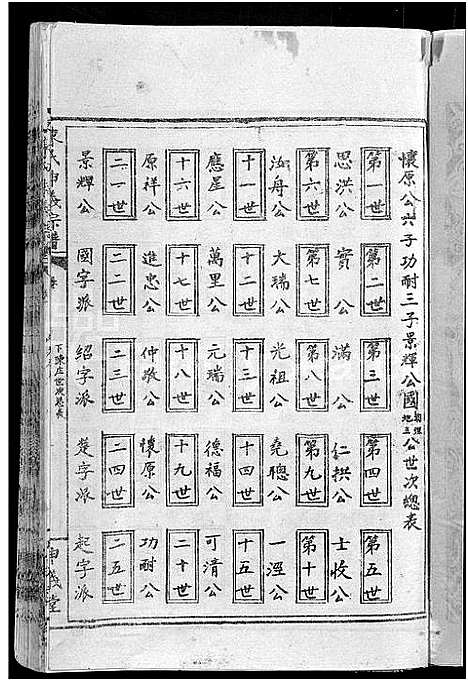 懷原公六子功耐三子景輝公國朝選地三公世次總表
第一世 思洪公
第二世 實公
第三世 滿公
第四世 仁拱公
第五世 士收公
第六世 汝舟公
第七世 大瑞公
第八世 光祖公
第九世 堯聰公
第十世 一涇公
十一世 應星公
十二世 萬里公
十三世 元瑞公
十四世 德福公
十五世 可清公
十六世 原祥公
十七世 進忠公
十八世 仲敬公
十九世 懷原公
二十世 功耐公
二一世 景輝公
二二世 國字派
二三世 紹字派
二四世 楚字派
二五世 起字派
陳氏申義宗譜
下陳庄世次總表
申義堂